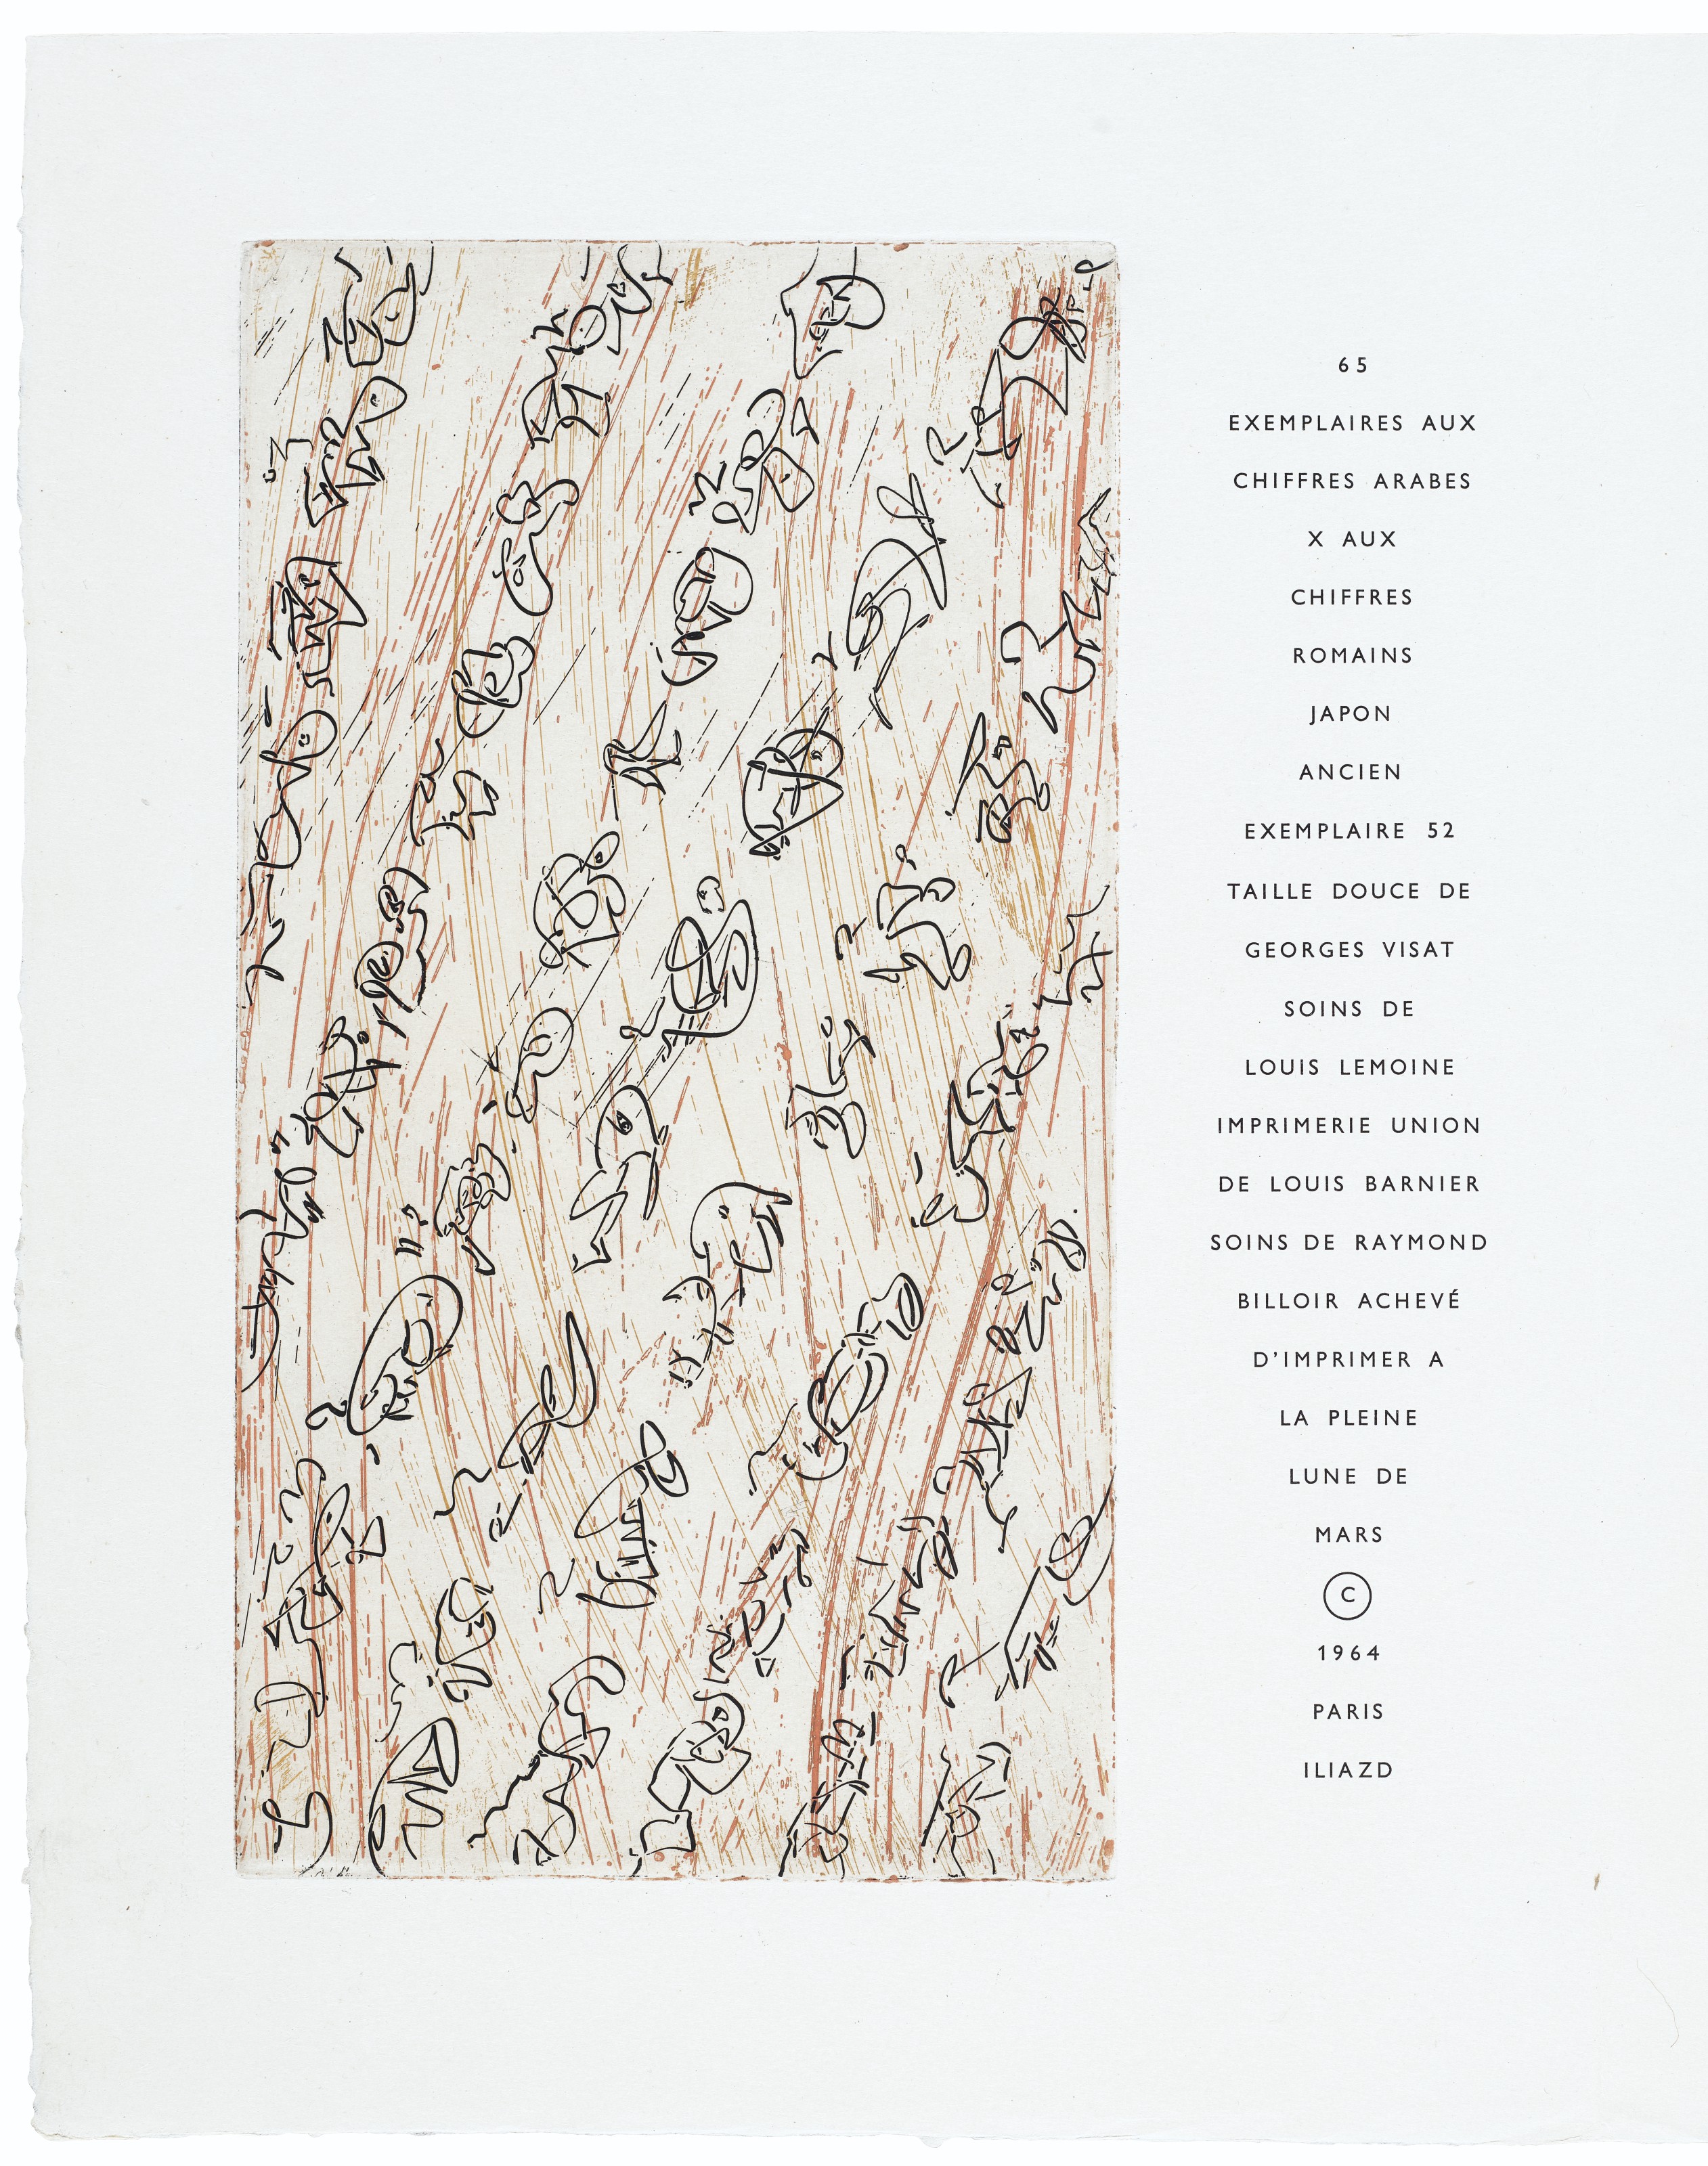 65
EXEMPLAIRES AUX
CHIFFRES ARABES
X AUX
CHIFFRES
ROMAINS
JAPON
ANCIEN
EXEMPLAIRE 52
TAILLE DOUCE DE
GEORGES VISAT
SOINS DE
LOUIS LEMOINE
IMPRIMERIE UNION
DE LOUIS BARNIER
SOINS DE RAYMOND
BILLOIR ACHEVÉ
D'IMPRIMER A
LA PLEINE
LUNE DE
MARS
©
1964
PARIS
ILIAZD